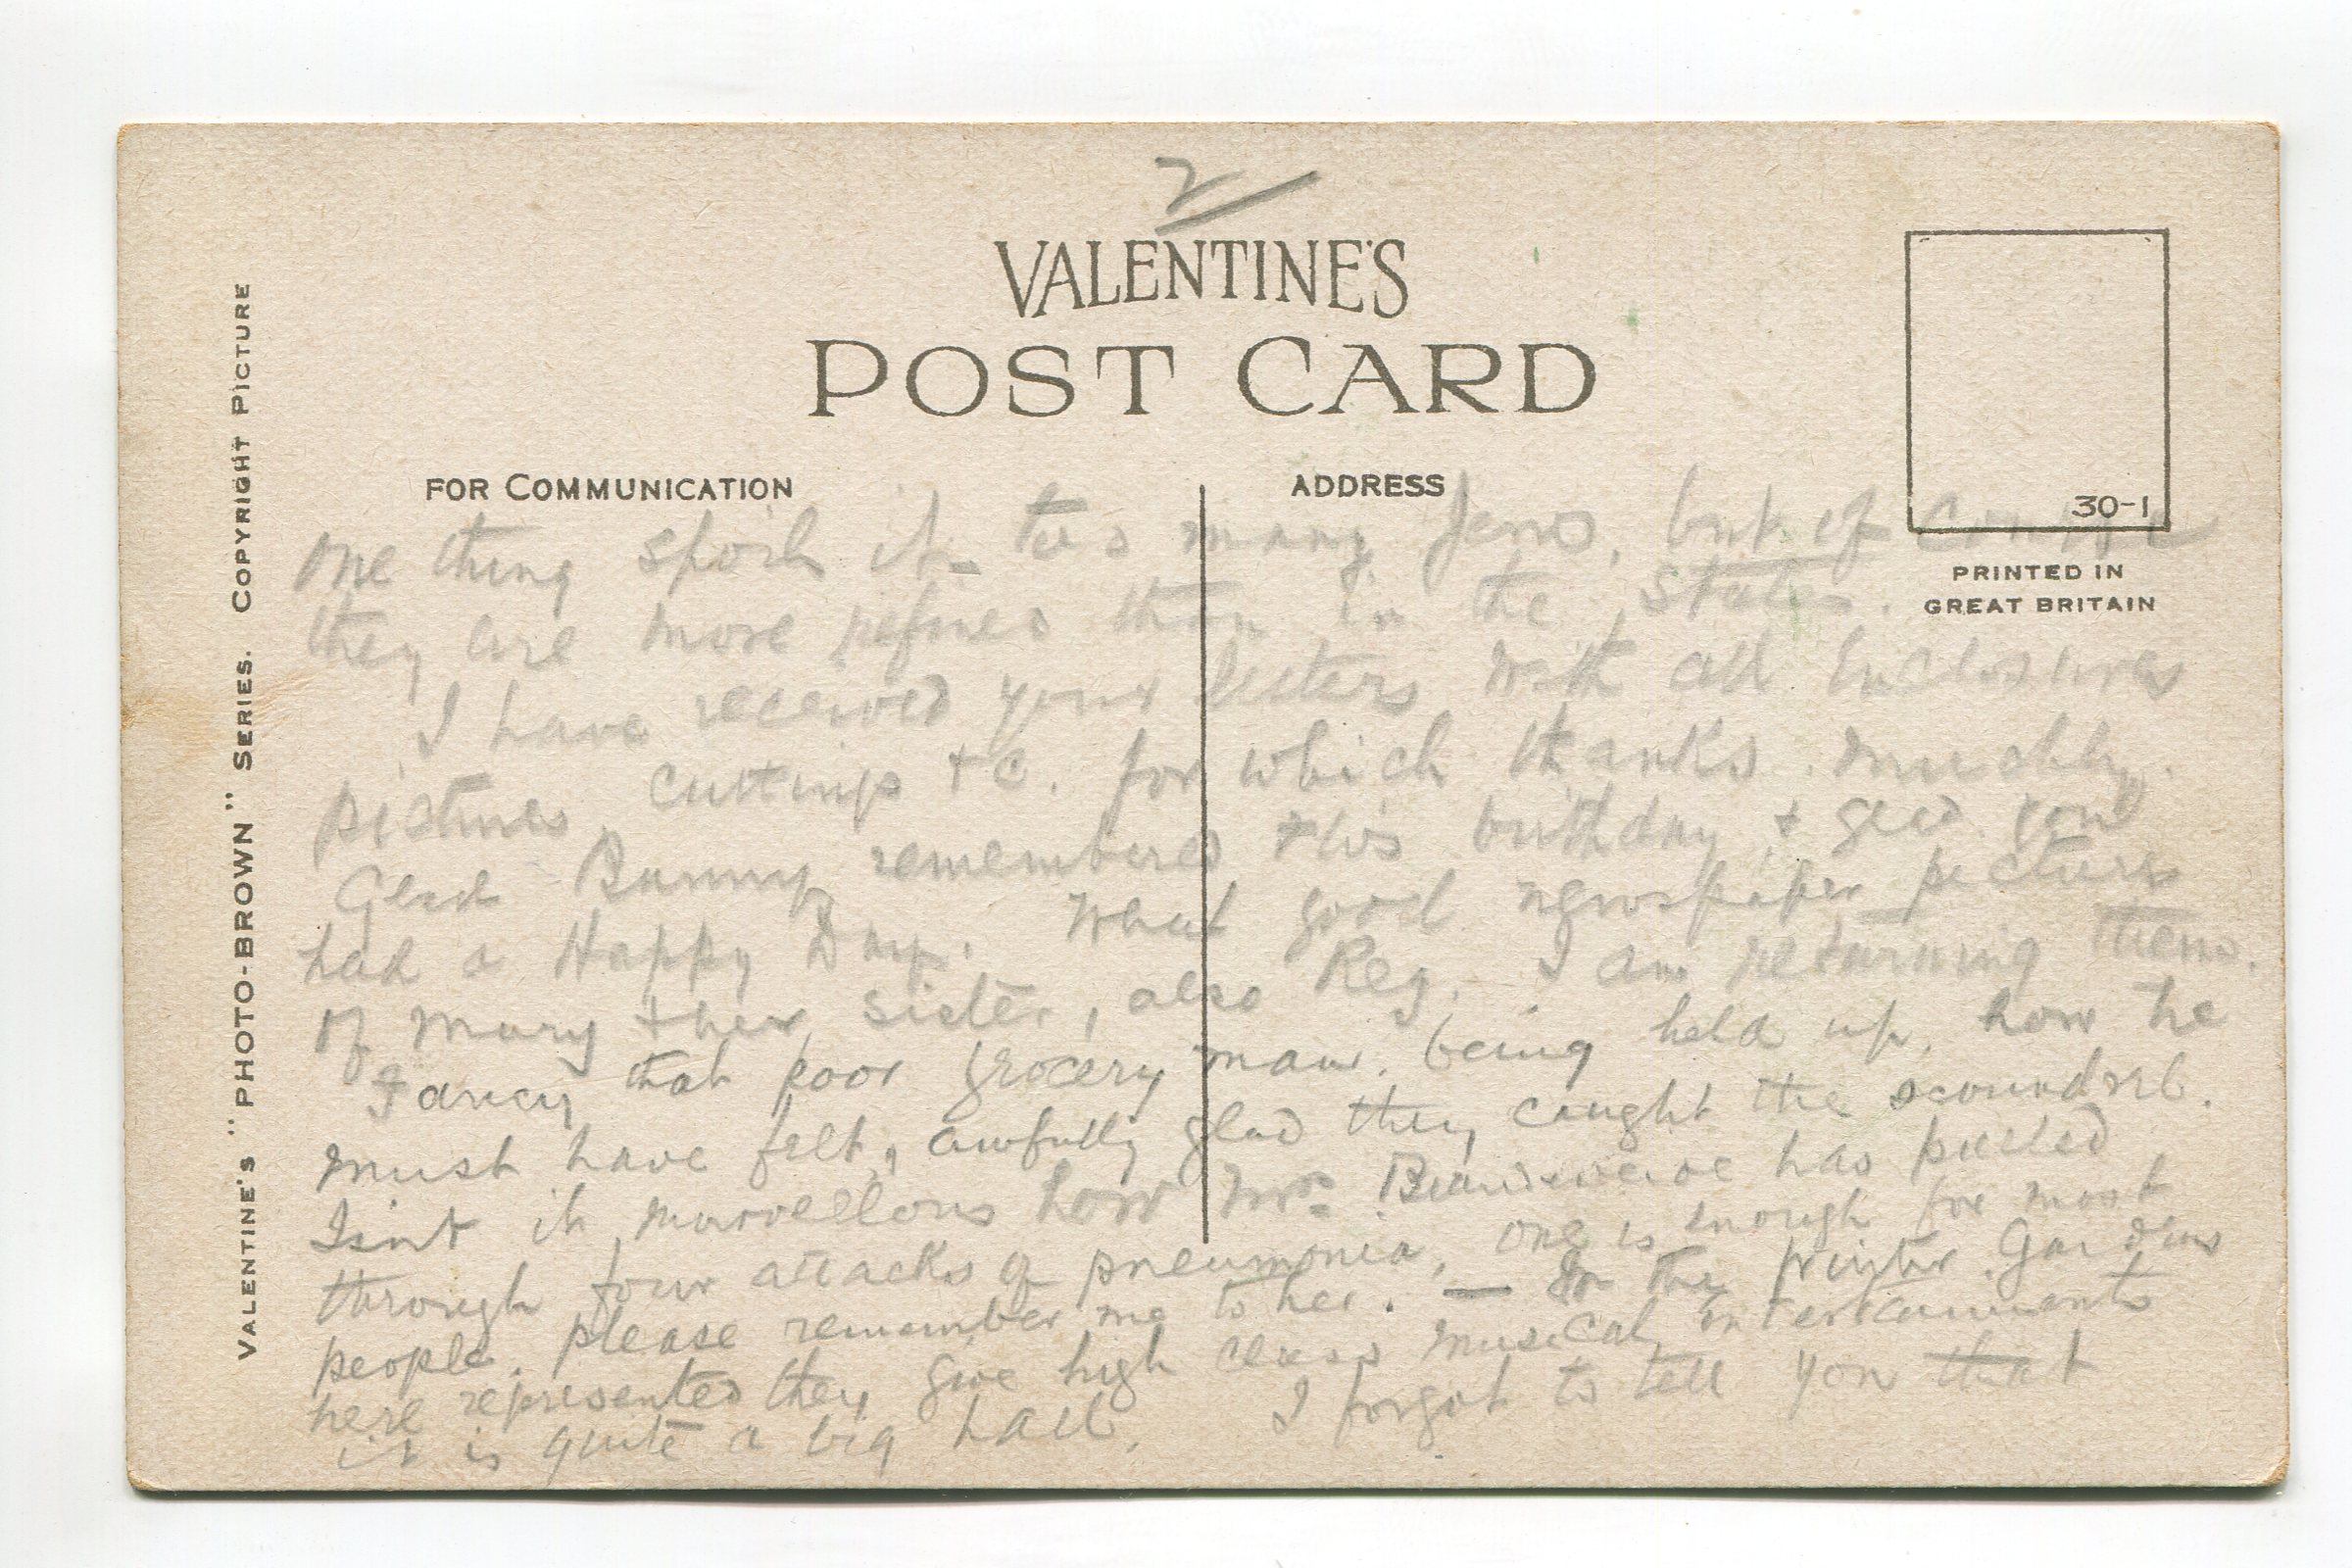 2
VALENTINE'S
POST CARD
FOR COMMUNICATION
ADDRESS
30-1
PRINTED IN
GREAT BRITAIN
VALENTINE'S "PHOTO-BROWN" SERIES. COPYRIGHT PICTURE
one thing spoils it - too many Jews, but of course
they are more refined than in the States.
I have received your letters with all enclosures
pictures, cuttings + c. for which thanks muchly.
Glad Bunny remembered this birthday + glad you
had a Happy Day. What good newspaper pictures
of Mary + her sister, also Reg. I am returning them.
Fancy that poor grocery man, being held up, how he
must have felt, awfully glad they caught the scoundrel.
Isn't it marvellous how Mrs. has pulled
through four attacks of pneumonia, one is enough for most
people. please remember me to her. — In the Winter Gardens
here represented they give high class musical entertainments
it is quite a big hall. I forgot to tell you that